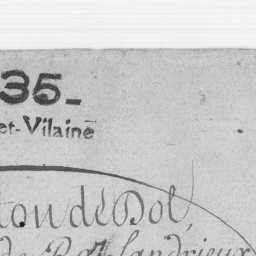 35_
et-Vilaine
ton de Dol
de Roz Landrieux